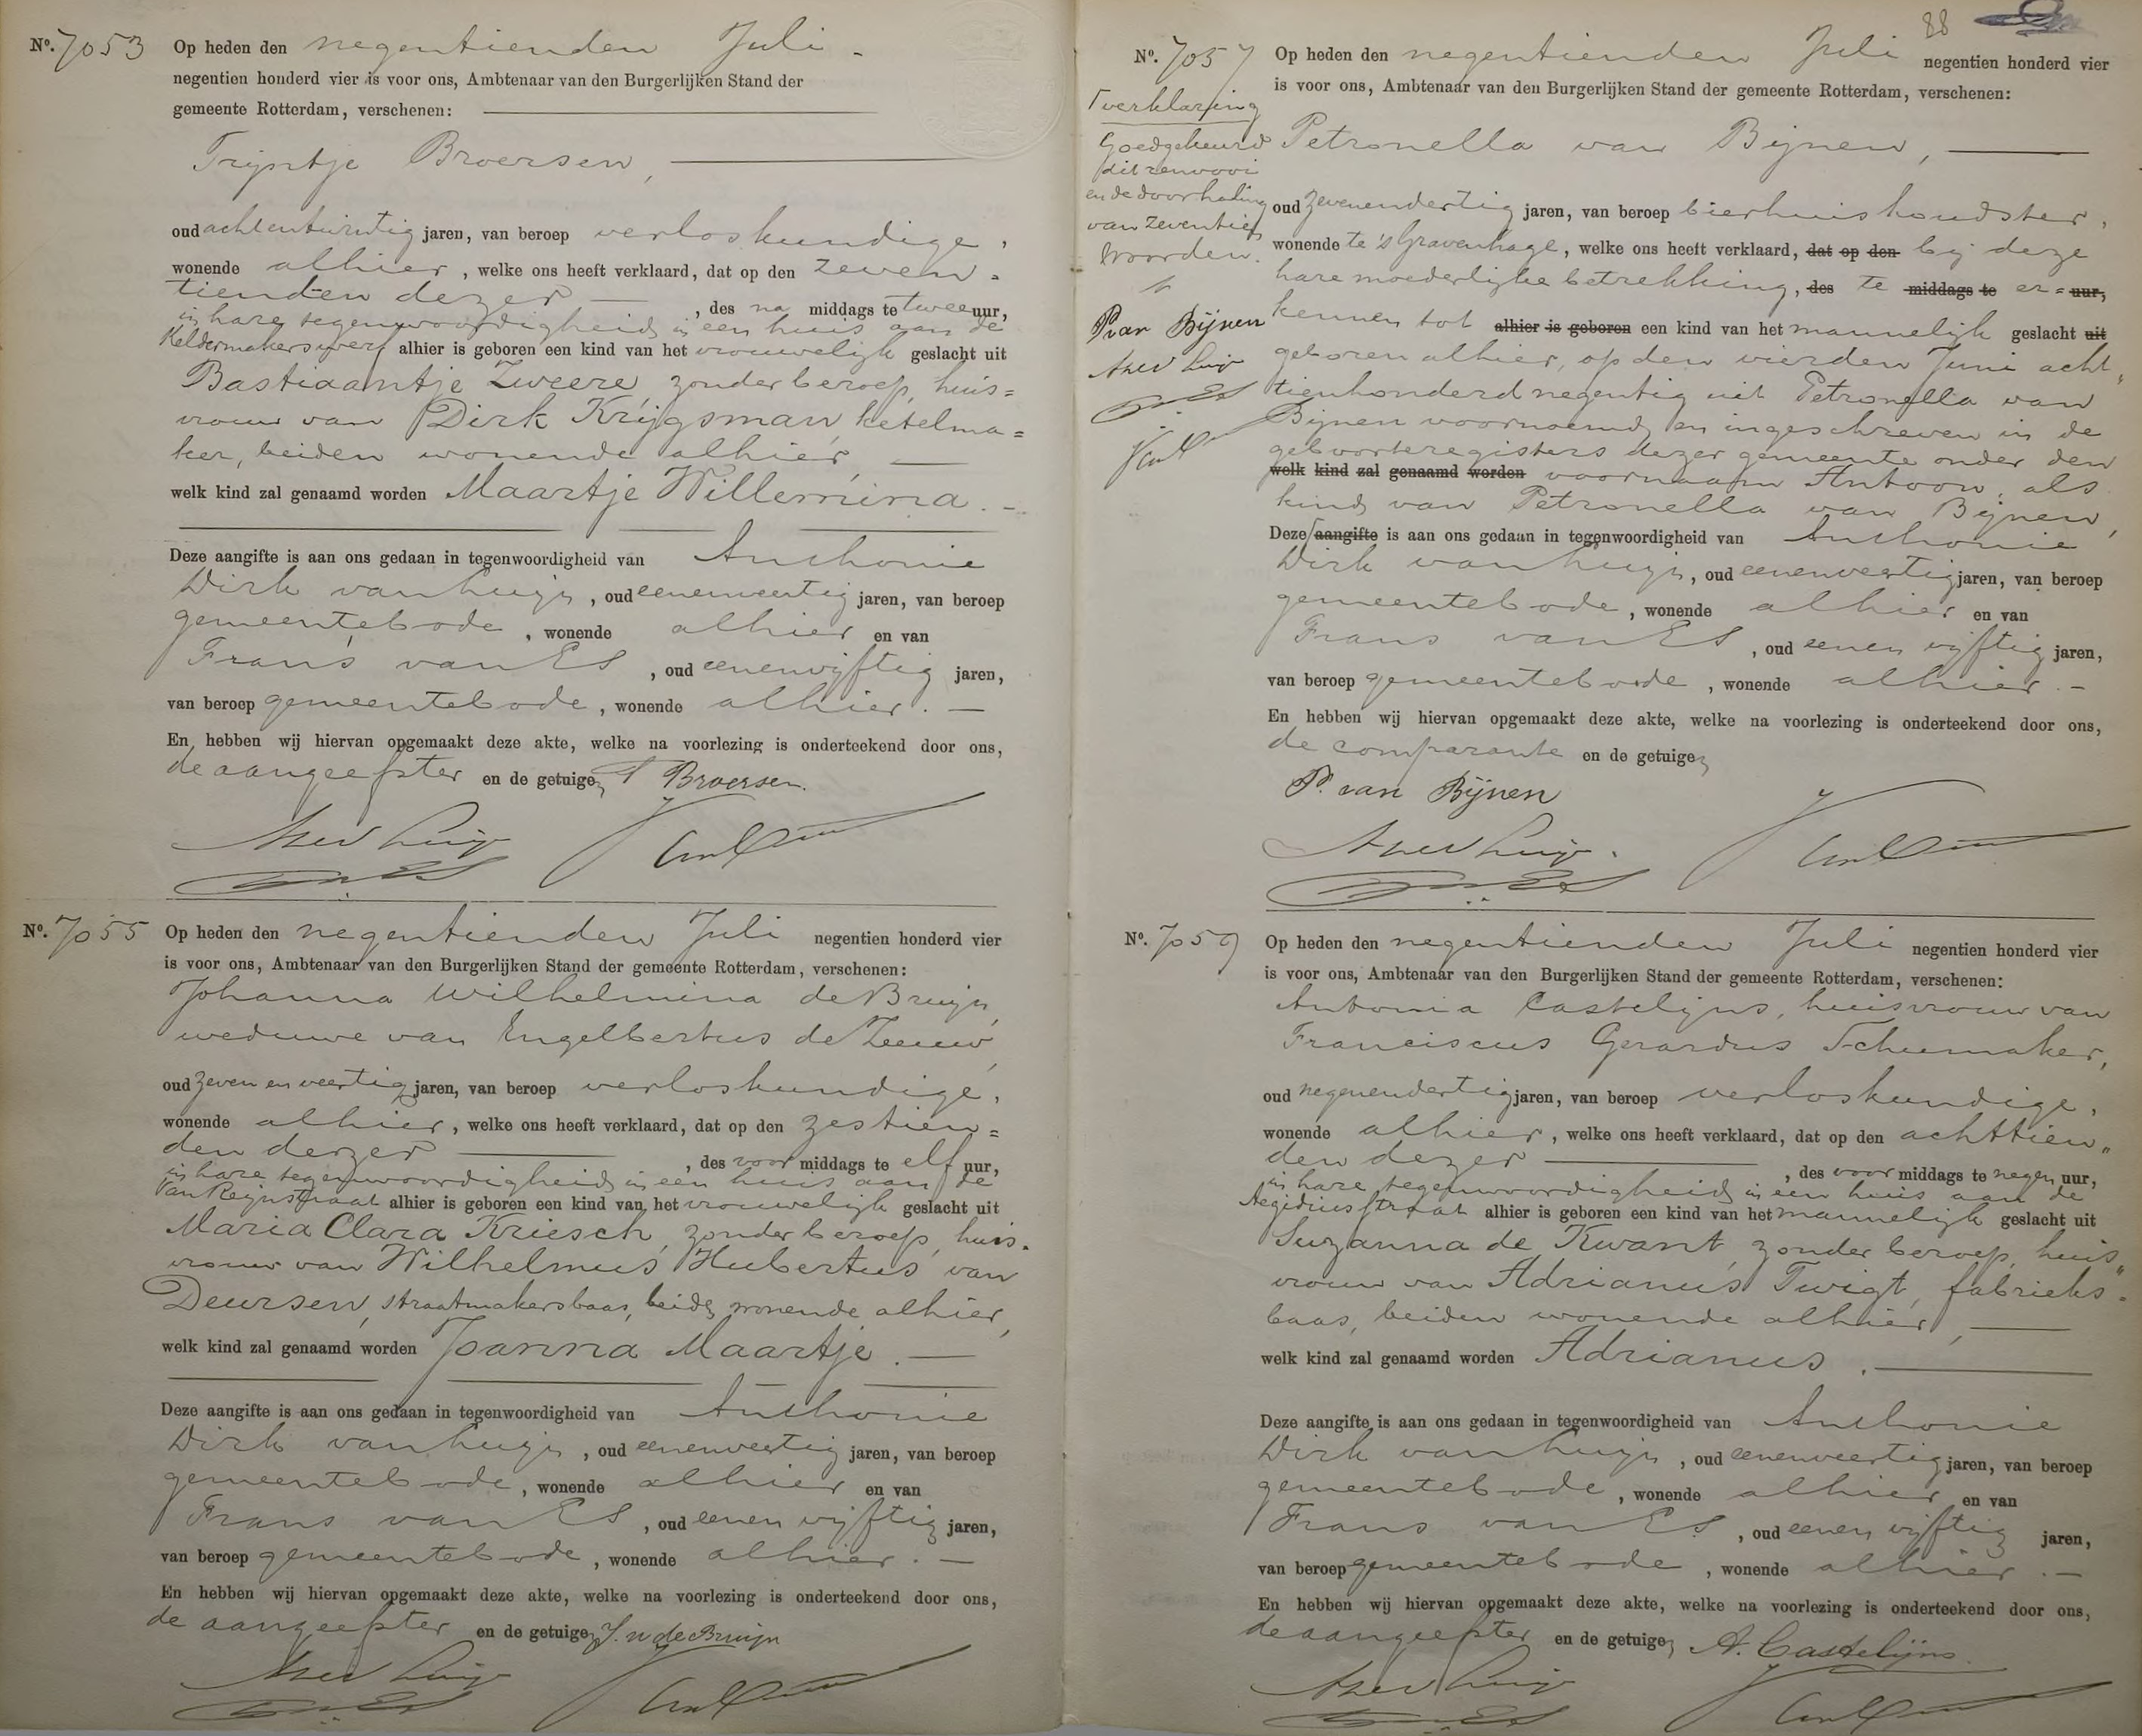 Nº. 7053 Op heden den negentienden Juli
negentien honderd vier is voor ons, Ambtenaar van den Burgerlijken Stand der
gemeente Rotterdam, verschenen:
Trijntje Broersen,
oud achtentwintig jaren, van beroep verloskundige,
wonende alhier, welke ons heeft verklaard, dat op den zeven=
tienden dezer, des na middags te twee uur,
in hare tegenwoordigheid in een huis aan de
Keldermakerswerf alhier is geboren een kind van het vrouwelijk geslacht uit
Bastiaantje Zweere, zonder beroep, huis=
vrouw van Dirk Krijgsman, ketelma=
ker, beiden wonende alhier,
welk kind zal genaamd worden Maartje Willemina.
Deze aangifte is aan ons gedaan in tegenwoordigheid van Anthonie
Dirk van Luijn, oud eenenveertig jaren, van beroep
gemeentebode, wonende alhier en van
Frans van Es, oud eenenvijftig jaren,
van beroep gemeentebode, wonende alhier.
En hebben wij hiervan opgemaakt deze akte, welke na voorlezing is onderteekend door ons,
de aangeefster en de getuigen T Broersen.
Nº. 7055 Op heden den negentienden Juli negentien honderd vier
is voor ons, Ambtenaar van den Burgerlijken Stand der gemeente Rotterdam, verschenen:
Johanna Wilhelmina de Bruijn,
weduwe van Engelbertus de Leeuw,
oud zeven en veertig jaren, van beroep verloskundige,
wonende alhier, welke ons heeft verklaard, dat op den zestien=
den dezer, des voor middags te elf uur,
in hare tegenwoordigheid in een huis aan de
Van Reijnstraat alhier is geboren een kind van het vrouwelijk geslacht uit
Maria Clara Kriesch, zonder beroep, huis=
vrouw van Wilhelmus Hubertus van
Deursen, straatmakersbaas, beide wonende alhier,
welk kind zal genaamd worden Joanna Maartje.
Deze aangifte is aan ons gedaan in tegenwoordigheid van Anthonie
Dirk van Luijn, oud eenenveertig jaren, van beroep
gemeentebode, wonende alhier en van
Frans van Es, oud eenen vijftig jaren,
van beroep gemeentebode, wonende alhier.
En hebben wij hiervan opgemaakt deze akte, welke na voorlezing is onderteekend door ons,
de aangeefster en de getuigen J. W de Bruijn
88
Nº. 7057 Op heden den negentienden Juli negentien honderd vier
is voor ons, Ambtenaar van den Burgerlijken Stand der gemeente Rotterdam, verschenen:
verklaring
Goedgekeurd
dit renvooi
en de doorhaling
van zeventien
woorden.
P. van Bijnen
Petronella van Bijnen,
oud zevenendertig jaren, van beroep bierhuishoudster,
wonende te 's Gravenhage, welke ons heeft verklaard, dat op den bij deze
hare moederlijke betrekking, des te middags te er= uur,
kennen tot alhier is geboren een kind van het mannelijk geslacht uit
geboren alhier, op den vierden Juni acht=
tienhonderd negentig uit Petronella van
Bijnen voornoemd en ingeschreven in de
geboorteregisters dezer gemeente onder den
welk kind zal genaamd worden voornaam Antoon, als
kind van Petronella van Bijnen,
Deze aangifte is aan ons gedaan in tegenwoordigheid van Anthonie
Dirk van Luijn, oud eenenveertig jaren, van beroep
gemeentebode, wonende alhier en van
Frans van Es, oud eenen vijftig jaren,
van beroep gemeentebode, wonende alhier.
En hebben wij hiervan opgemaakt deze akte, welke na voorlezing is onderteekend door ons,
de comparante en de getuigen
P. van Bijnen
Nº. 7059 Op heden den negentienden Juli negentien honderd vier
is voor ons, Ambtenaar van den Burgerlijken Stand der gemeente Rotterdam, verschenen:
Antonia Castelijns, huisvrouw van
Franciscus Gerardus Schumaker,
oud negenendertig jaren, van beroep verloskundige,
wonende alhier, welke ons heeft verklaard, dat op den achttien=
den dezer, des voor middags te negen uur,
in hare tegenwoordigheid in een huis aan de
Aegidiusstraat alhier is geboren een kind van het mannelijk geslacht uit
Suzanna de Kwant, zonder beroep, huis=
vrouw van Adrianus Twigt, fabrieks=
baas, beiden wonende alhier,
welk kind zal genaamd worden Adrianus.
Deze aangifte is aan ons gedaan in tegenwoordigheid van Anthonie
Dirk van Luijn, oud eenenveertig jaren, van beroep
gemeentebode, wonende alhier en van
Frans van Es, oud eenen vijftig jaren,
van beroep gemeentebode, wonende alhier.
En hebben wij hiervan opgemaakt deze akte, welke na voorlezing is onderteekend door ons,
de aangeefster en de getuigen A. Castelijns.